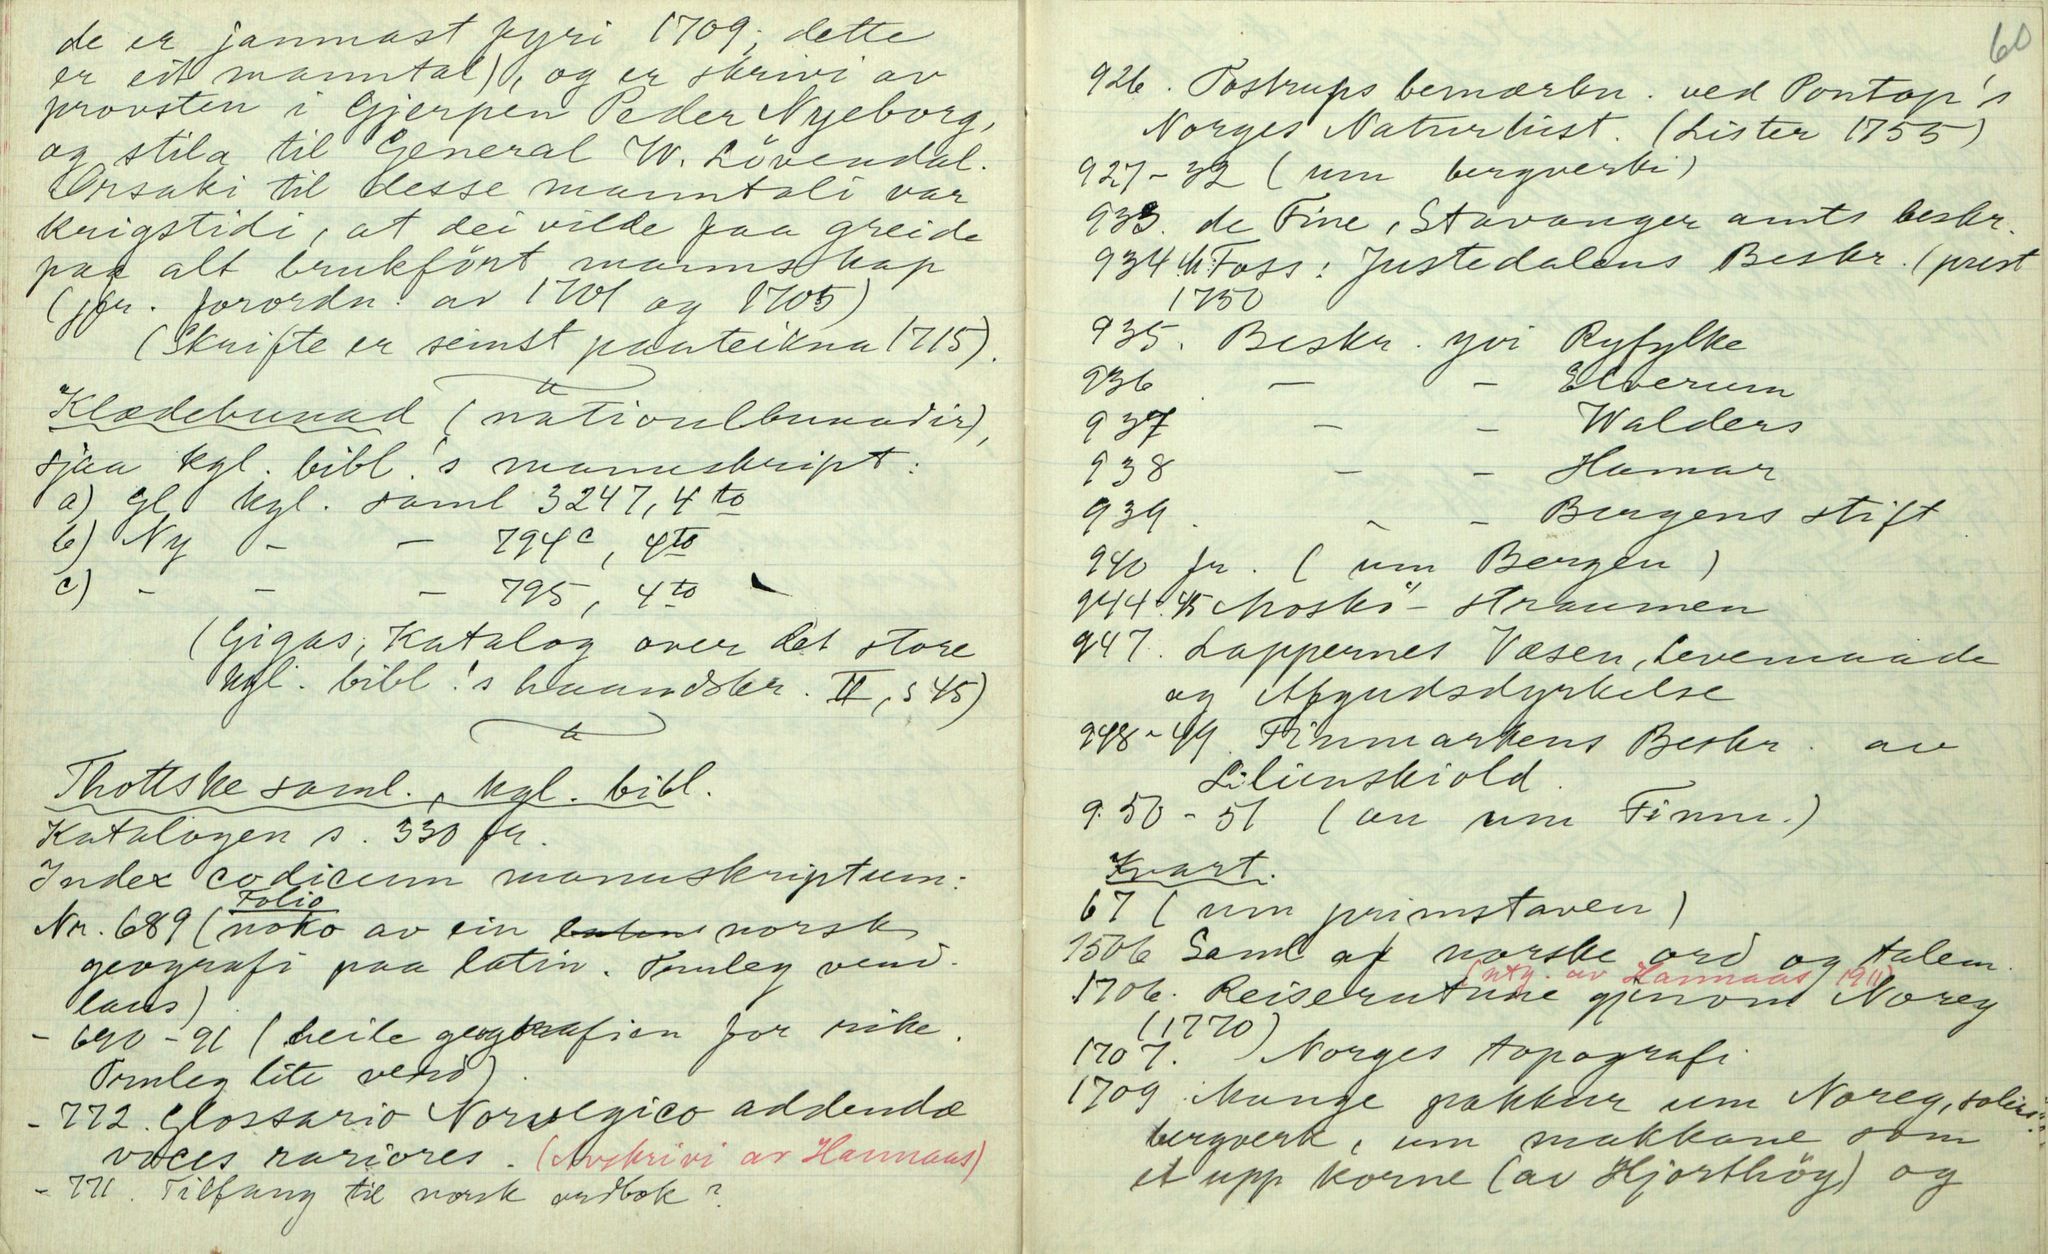 de er janmast fyri 1709; dette
er eit manntal), og er skrivi av
provsten i Gjerpen Peder Nyeborg,
og stila til General W. Lövendal.
Orsaki til desse manntali var
krigstidi, at dei vilde faa greide
paa alt brukfört mannskap
(jfr. forordn. av 1701 og 1705)
(Skrifte er seinst paateikna 1715).
Klædebunad (nationalbunadir),
sjaa kgl. bibl.'s manuskript:
a) Gl. kgl. saml 3247, 4to
b) Ny - - 794c, 4to
c) - - - 795, 4to
(Gigas, Katalog over det store
kgl. bibl.'s haandskr. II, s 45)
Thottske saml., kgl. bibl.
Katalogen s. 330 fr.
Index codicum manuskriptum:
Folio
Nr. 689 (noko av ein norsk
geografi paa latin. Truleg verd-
laus)
- 690-91 (heile geografien for rike.
Truleg lite verd)
- 772. Glossario Norwegico addendæ
voces rariores. (Avskrivi av Hannaas)
- 771. Tilfang til norsk ordbok?
60
926. Tostrups bemærkn. ved Pontop's
Norges Naturhist. (Lister 1755)
927-32 (um bergverki)
933. de Fine, Stavanger amts beskr.
934 M. Foss: Justedalens Beskr. (prest
1750
935. Beskr. yvi Ryfylke
936 - - Elverum
937 - - Walders
938 - - Hamar
939. - - Bergens stift
940 fr. (um Bergen)
944-45 Moskö-straumen
947. Lappernes Væsen, Levemaade
og Afgudsdyrkelse
948-49. Finmarkens Beskr. av
Lilienskiold.
950-51 (au um Finm.)
Kvart.
67 (um primstaven)
1506 Saml af norske ord og talem.
(utg. av Hannaas 1911)
1706. Reiserutune gjenom Noreg
(1770)
1707. Norges topografi.
1709 Mange pakkur um Noreg,
bergverk, um makkane som
et upp korne (av Hjorthöy) og